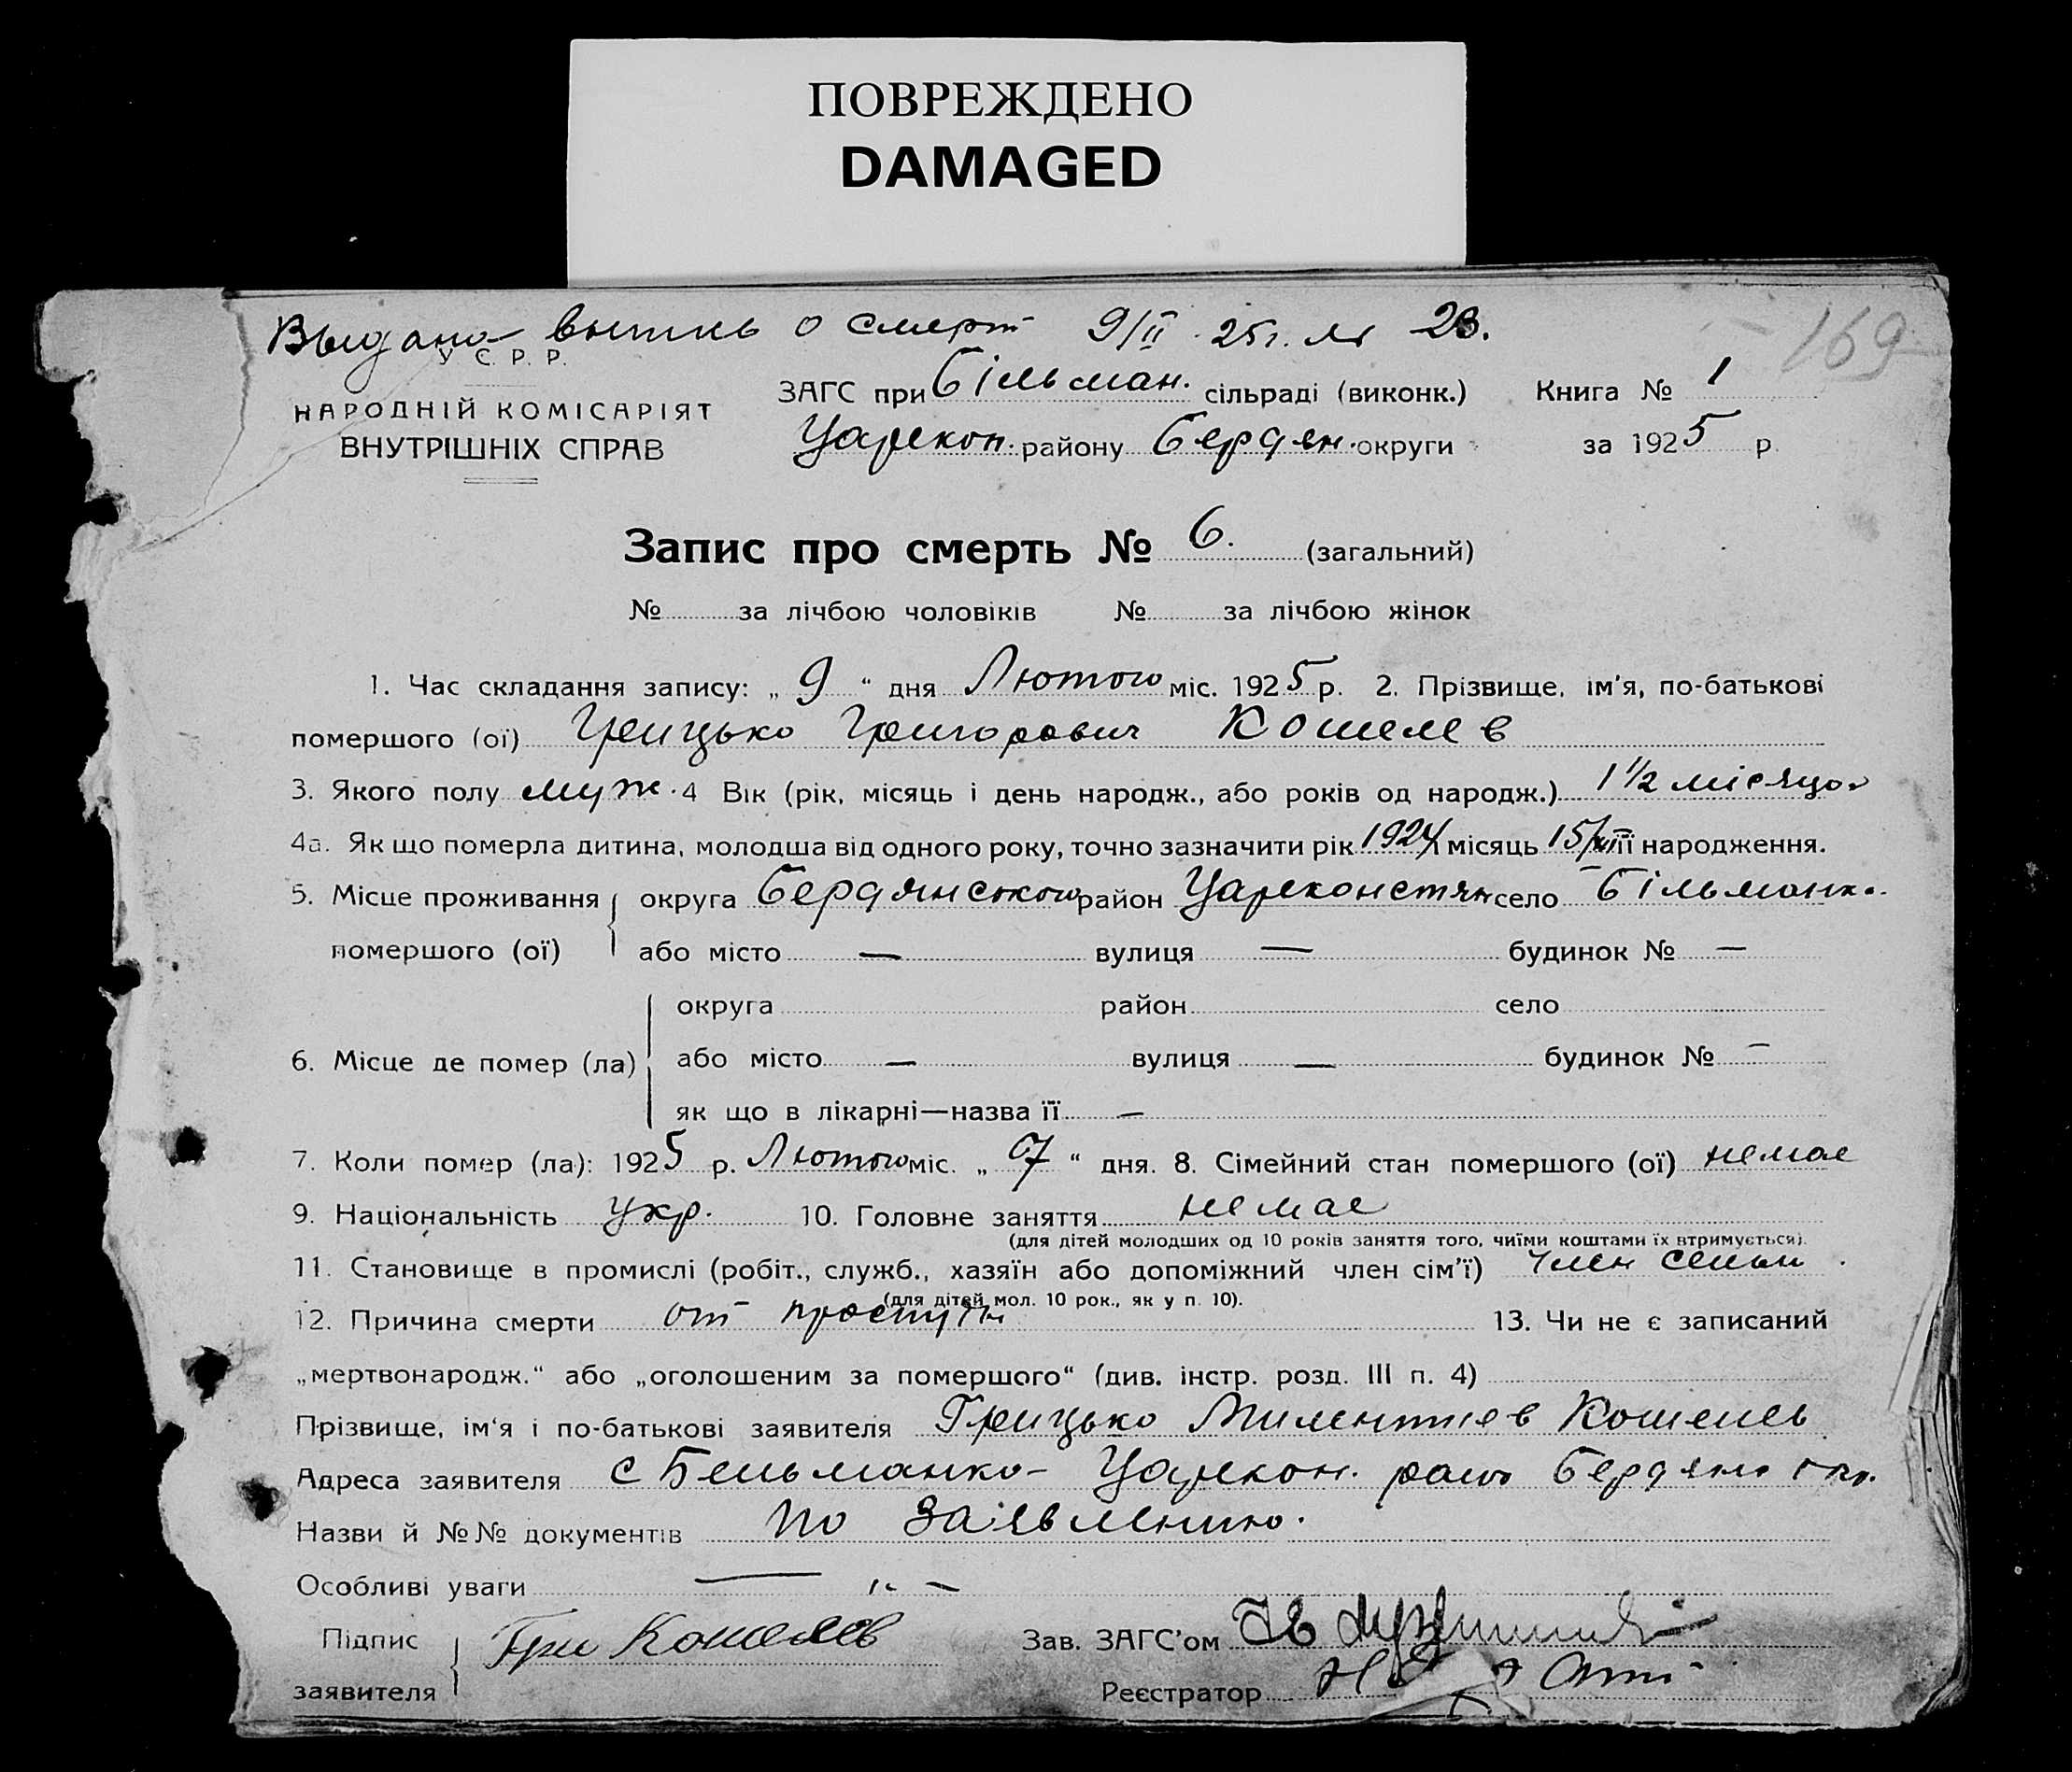 ПОВРЕЖДЕНО
DAMAGED
169
Выдана выпись о смерт 9/II 25г. № 23.
У. С. Р. Р.
НАРОДНІЙ КОМІСАРІЯТ
ВНУТРІШНІХ СПРАВ
ЗАГС при Більман. сільраді (виконк.) Книга № 1
Царекон. району Бердян. округи за 1925 р.
Запис про смерть № 6. (загальний)
№ за лічбою чоловіків № за лічбою жінок
1. Час складання запису: „ 9 “ дня Лютого міс. 1925 р. 2. Прізвище, ім'я, по-батькові
помершого (ої) Грицько Григорович Кошелев
3. Якого полу муж. 4 Вік (рік, місяць і день народж., або років од народж.) 1 1/2 місяцов
4а. Як що померла дитина, молодша від одного року, точно зазначити рік 1924 і місяць 15/XII її народження.
5. Місце проживання округа Бердянського район Цареконстян село Більманка.
помершого (ої) або місто — вулиця — будинок № —
округа район село
6. Місце де помер (ла) або місто — вулиця — будинок № —
як що в лікарні—назва її —
7. Коли помер (ла): 1925 р. Лютого міс. „ 7 “ дня. 8. Сімейний стан помершого (ої) немае
9. Національність укр. 10. Головне заняття немае
(для дітей молодших од 10 років заняття того, чиїми коштами їх втримується).
11. Становище в промислі (робіт., служб., хазяїн або допоміжний член сім'ї) член семьи
(для дітей мол. 10 рок., як у п. 10).
12. Причина смерти от простуди 13. Чи не є записаний
„мертвонародж.“ або „оголошеним за помершого“ (див. інстр. розд. III п. 4)
Прізвище, ім'я і по-батькові заявителя Грицько Милентиев Кошелев
Адреса заявителя с Бельманка Царекон. раио Бердянс окр.
Назви й №№ документів по заявлению.
Особливі уваги — „ —
Підпис
заявителя Гри Кошелев
Зав. ЗАГС'ом
Реєстратор